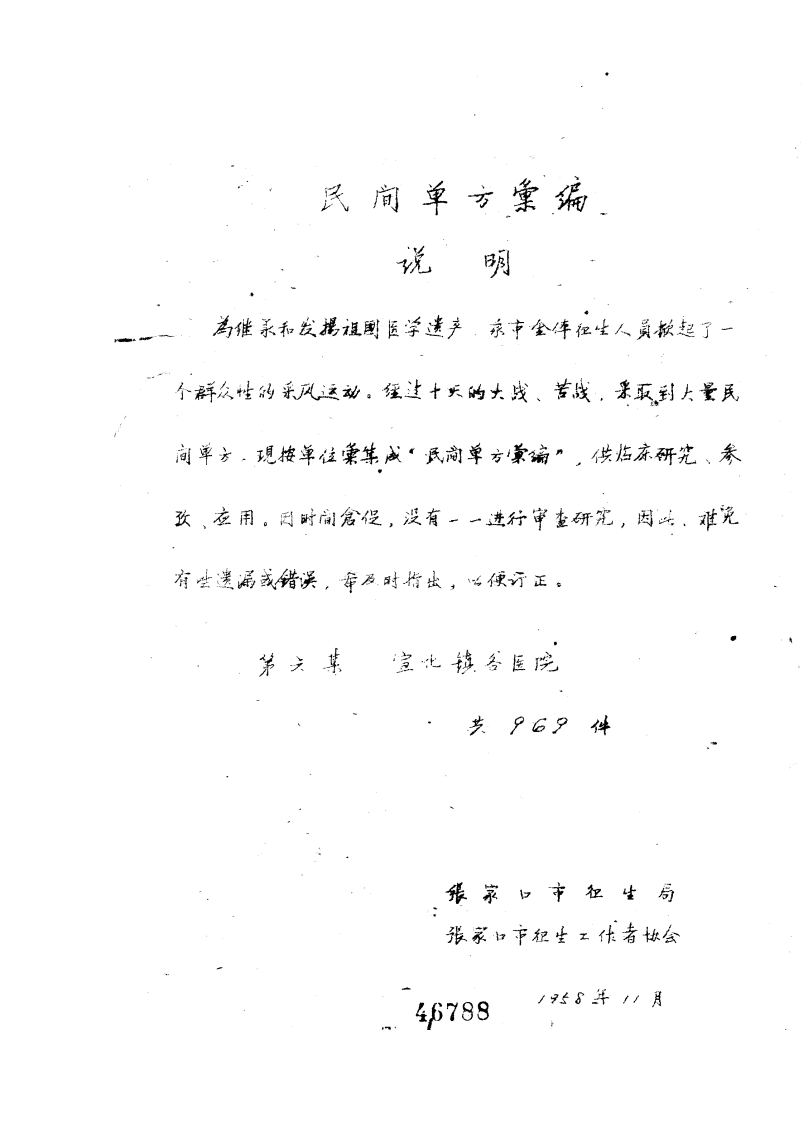 民间单方彙编
说明
為继承和发揚祖国医学遗产 我市全体卫生人員掀起了一
个群众性的采风运动。经过十天的大战、苦战，采取到大量民
间单方．現按单位彙集成“民间单方彙编”，供临床研究、参
攷、应用。因时间倉促，没有一一进行审查研究，因此、难免
有些遗漏或錯误，希及时指出，以便订正。
第六集 宣化镇各医院
共 969 件
張家口市卫生局
張家口市卫生工作者协会
1958年11月
46788